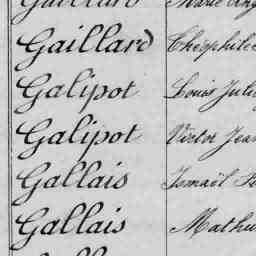 Gaillard Marie
Gaillard Théophile
Galipot Louis Jules
Galipot Victor Jean
Gallais Ismaël
Gallais Mathu